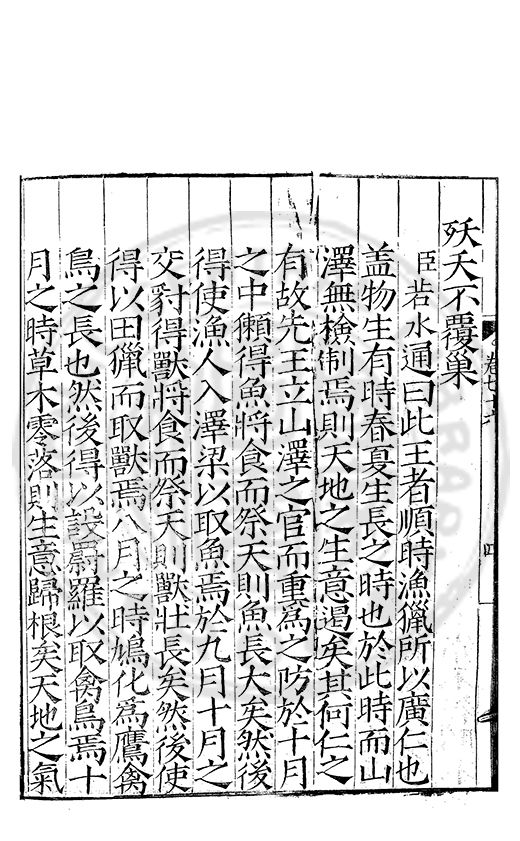 殀夭不覆巢
臣若水通曰此王者順時漁獵所以廣仁也
盖物生有時春夏生長之時也於此時而山
澤無檢制焉則天地之生意遏矣其何仁之
有故先王立山澤之官而重爲之防於十月
之中獺得魚將食而祭天則魚長大矣然後
得使漁人入澤梁以取魚焉於九月十月之
交豺得獸將食而祭天則獸壯長矣然後使
得以田獵而取獸焉八月之時鳩化爲鷹禽
鳥之長也然後得以設罻羅以取禽鳥焉十
月之時草木零落則生意歸根矣天地之氣
卷七十六
四